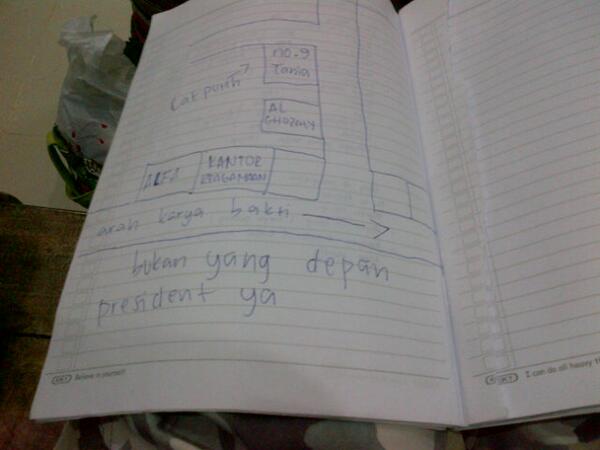 no.9
Tania
Cat putih
AL
GHOZALY
ALFA
KANTOR
KEAGAMAAN
arah karya bakti
bukan yang depan
president ya
Believe in yourself
I can do all heavy